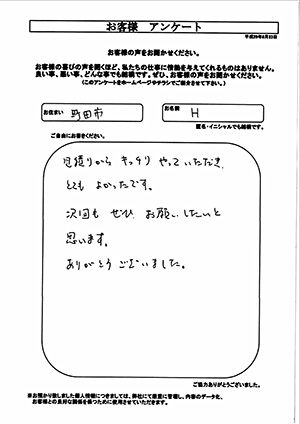 お客様 アンケート
平成29年8月23日
お客様の声をお聞かせください。
お客様の喜びの声を聞くほど、私たちの仕事に情熱を与えてくれるものはありません。
良い事、悪い事、どんな事でも結構です。ぜひ、お客様の声をお聞かせください。
(このアンケートをホームページやチラシでご紹介させて下さい。)
お住まい 町田市
お名前 H
匿名・イニシャルでも結構です。
ご自由にお書きください。
見積りから キッチリ やっていただき、
とても よかったです。
次回も ぜひ お願いしたいと
思います。
ありがとう ございました。
ご協力ありがとうございました。
※お預かり致しました個人情報につきましては、弊社にて厳重に管理し、内容のデータ化、
お客様との良好な関係を保つために使用させていただきます。